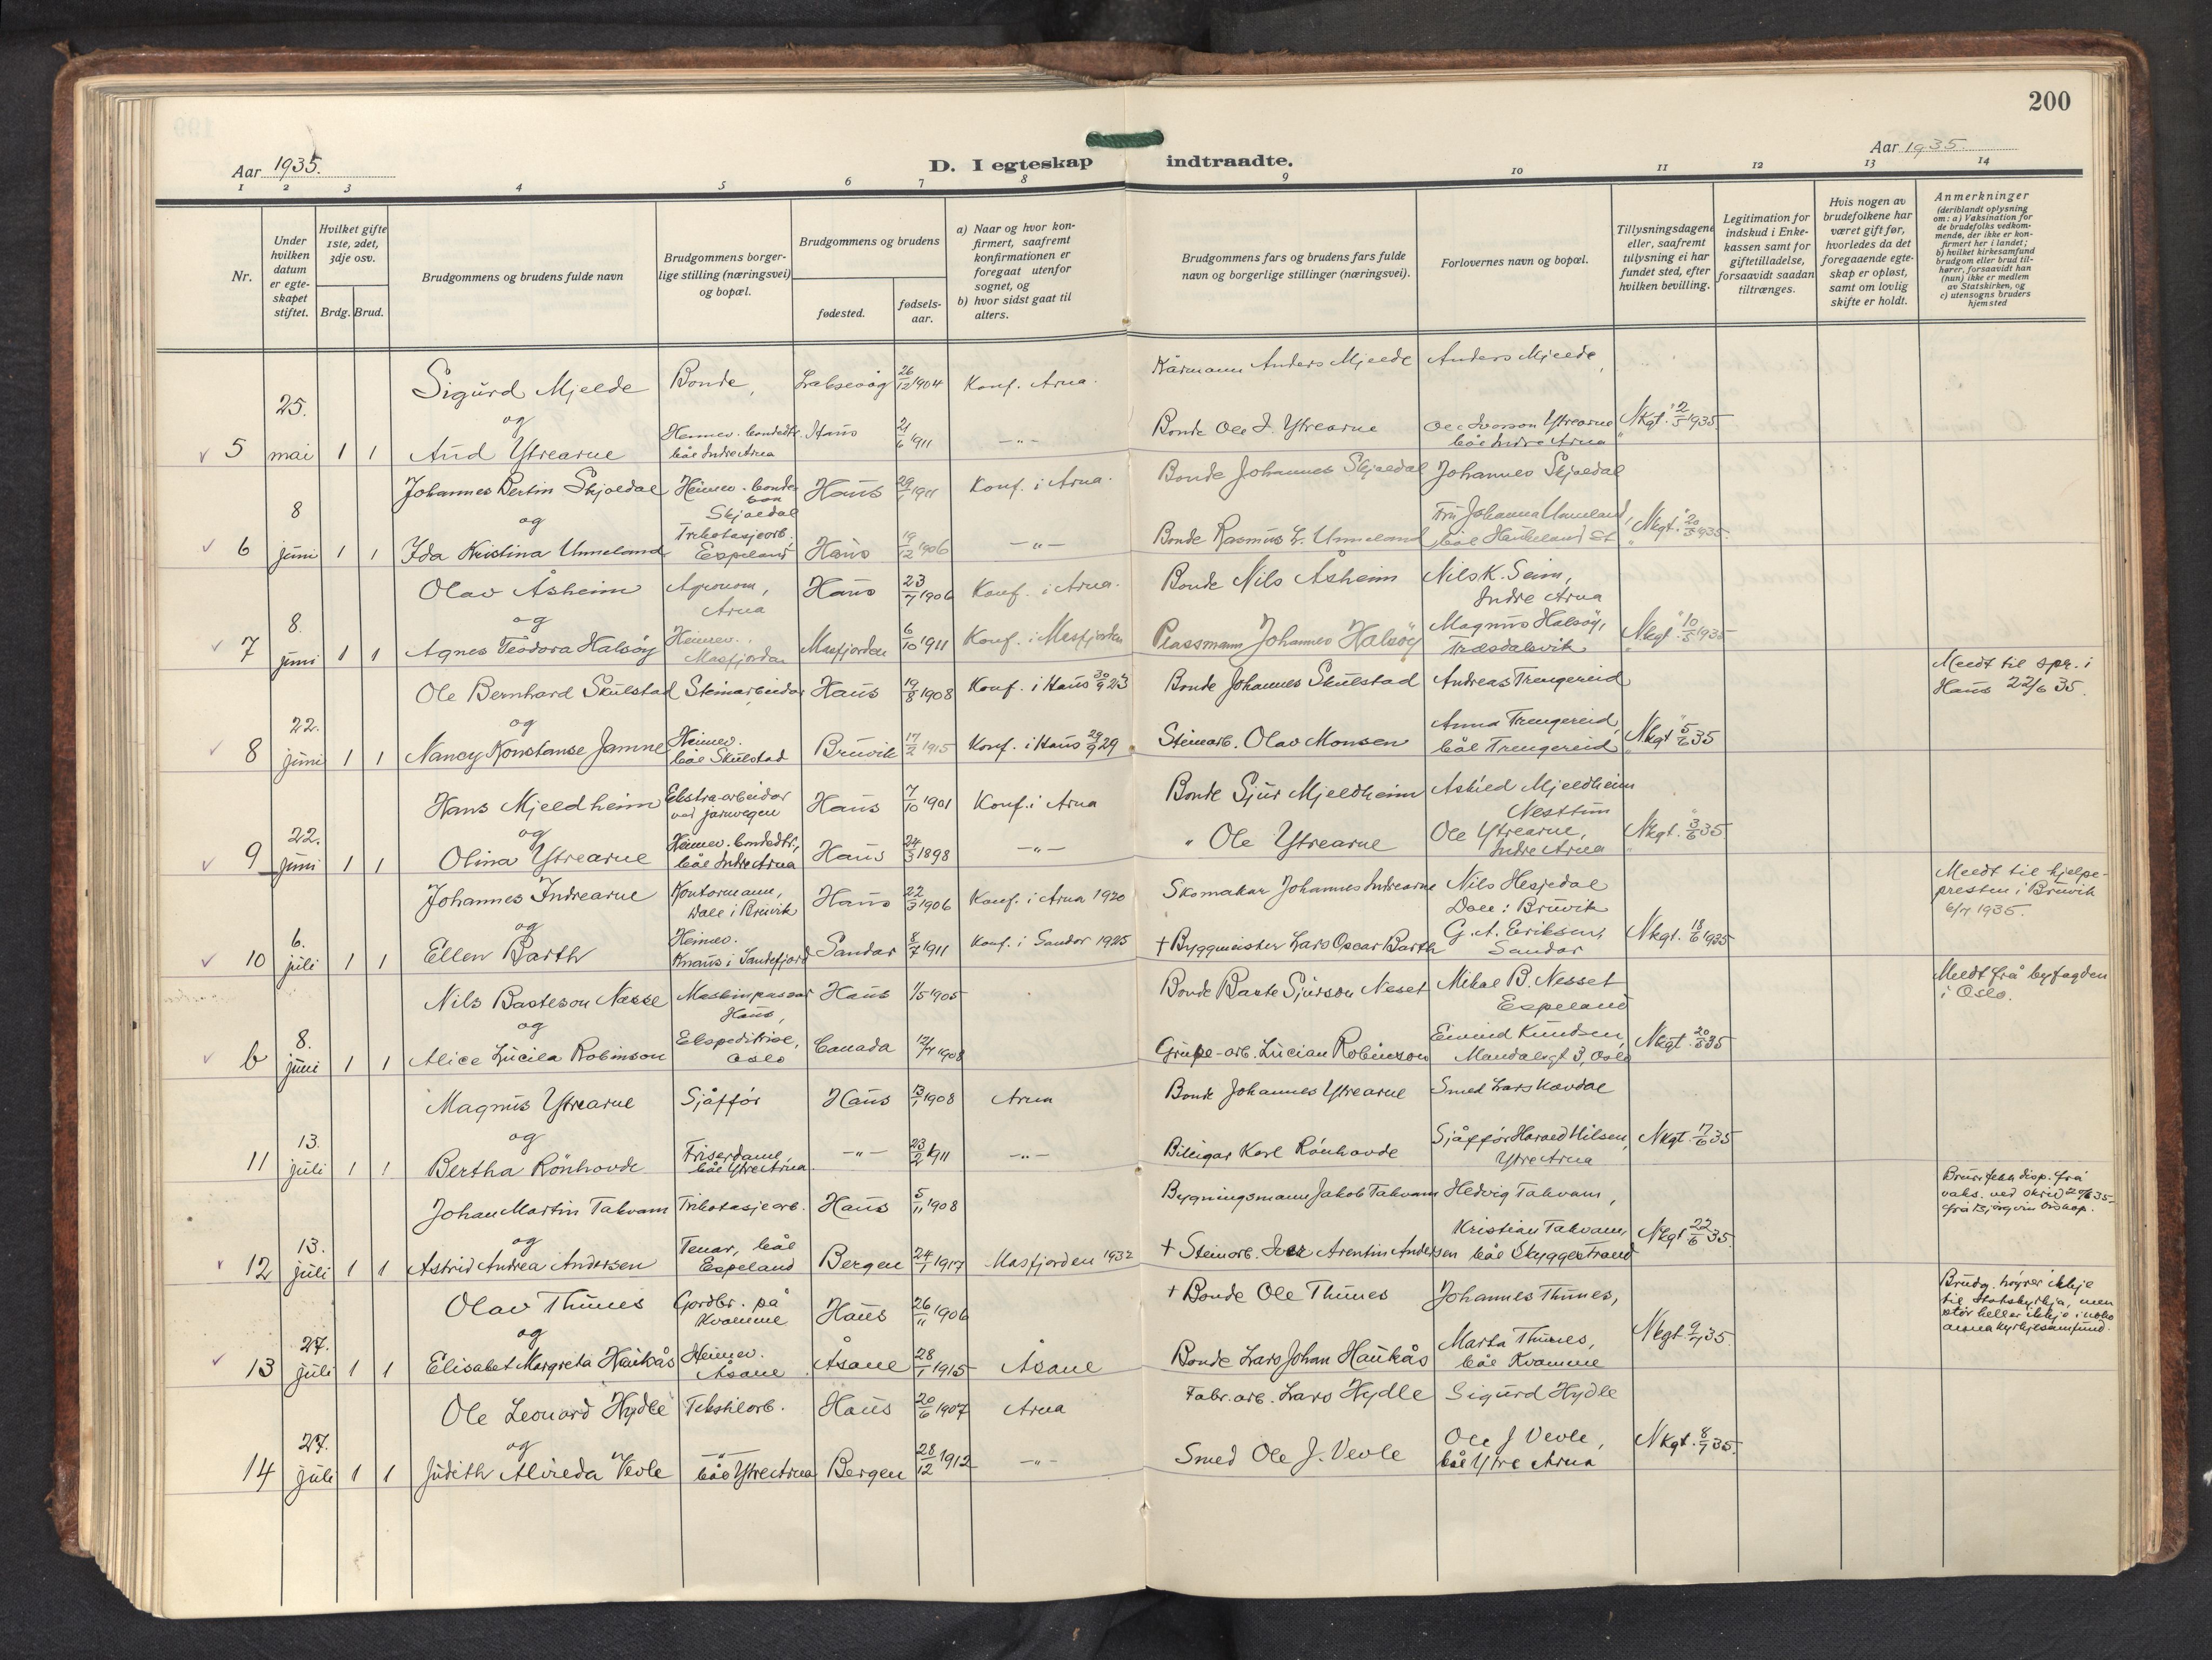 200
Aar 1935.
D. I egteskap indtraadte.
Aar 1935.
1 2 3 4 5 6 7 8 9 10 11 12 13 14
Nr.
Under hvilken datum er egte-skapet stiftet.
Hvilket gifte 1ste, 2det, 3dje osv.
Brdg. Brud.
Brudgommens og brudens fulde navn
Brudgommens borger-lige stilling (næringsvei) og bopæl.
Brudgommens og brudens
fødested.
fødsels-aar.
a) Naar og hvor kon-firmert, saafremt konfirmationen er foregaat utenfor sognet, og
b) hvor sidst gaat til alters.
Brudgommens fars og brudens fars fulde navn og borgerlige stillinger (næringsvei).
Forlovernes navn og bopæl.
Tillysningsdagene eller, saafremt tillysning ei har fundet sted, efter hvilken bevilling.
Legitimation for indskud i Enke-kassen samt for giftetilladelse, forsaavidt saadan tiltrænges.
Hvis nogen av brudefolkene har været gift før, hvorledes da det foregaaende egte-skap er opløst, samt om lovlig skifte er holdt.
Anmerkninger
(deriblandt oplysning om: a) Vaksination for de brudefolks vedkom-mende, der ikke er kon-firmert her i landet; b) hvilket kirkesamfund brudgom eller brud til-hører, forsaavidt han (hun) ikke er medlem av Statskirken, og c) utensogns bruders hjemsted
Sigurd Mjelde Bonde, Laksevåg 26/12 1904 Konf. Arna. Kårmann Anders Mjelde Anders Mjelde,
25. og
5 mai 1 1 Aud Ytrearne Heimev. bondedtr. båe Indre Arna Haus 21/6 1911 -"- Bonde Ole I. Ytrearne Ole Iverson Ytrearne båe Indre Arna Nkgt. 2/5 1935
Johannes Bertin Skjoldal Heimev. bonde son Skjoldal Haus 29/1 1911 Konf. i Arna. Bonde Johannes Skjoldal Johannes Skjoldal
8 og
6 juni 1 1 Ida Kristina Unneland Trikotasjearb. Espeland Haus 19/12 1906 -"- Bonde Rasmus L. Unneland Fru Johanna Unneland, båe Haukeland St Nkgt. 20/5 1935.
Olav Åsheim Agronom, Arna Haus 23/7 1906 Konf. i Arna. Bonde Nils Åsheim Nils K. Seim, Indre Arna
8. og
7 juni 1 1 Agnes Teodora Halsøy Heimev. Masfjorden Masfjorden 6/10 1911 Konf. i Masfjorden Plassmann Johannes Halsøy Magnus Halsøy, Trædalsvik Nkgt. 10/5 1935
Ole Bernhard Skulstad Steinarbeidar Haus 19/8 1908 Konf. i Haus 30/9 23 Bonde Johannes Skulstad Andreas Trengereid Meldt til spr. i Haus 22/6 35.
22. og
8 juni 1 1 Nancy Konstanse Jamne Heimev. båe Skulstad Bruvik 17/2 1915 Konf. i Haus 29/9 29 Steinarb. Olav Monsen Anna Trengereid, båe Trengereid Nkgt 5/6 35
Hans Mjeldheim Ekstra-arbeidar ved jarnvegen Haus 7/10 1901 Konf. i Arna Bonde Sjur Mjeldheim Askild Mjeldheim Nesttun
22. og
9 juni 1 1 Olina Ytrearne Heimev. bondedtr., båe Indre Arna Haus 24/3 1898 -"- " Ole Ytrearne Ole Ytrearne, Indre Arna Nkgt. 3/6 35
Johannes Indrearne Kontormann, Dale i Bruvik Haus 22/3 1906 Konf. i Arna 1920 Skomakar Johannes Indrearne Nils Hesjedal Dale i Bruvik Meldt til hjelpe-presten i Bruvik 6/7 1935.
6. og
10 juli 1 1 Ellen Barth Heimev. Knaus i Sandefjord Sandar 8/7 1911 Konf. i Sandar 1925 + Byggmeister Lars Oscar Barth G. A. Eriksen, Sandar Nkgt. 18/6 1935
Nils Basteson Næsse Maskinpassar Haus, Haus 1/5 1905 Bonde Baste Sjurson Neset Mikal B. Nesset Espeland Meldt frå byfogden i Oslo.
8. og
b juni 1 1 Alice Lucila Robinson Ekspeditrise, Oslo Canada 12/7 1908 Grube-arb. Lucian Robinson Eivind Knudsen, Mandalsgt 3, Oslo Nkgt. 20/5 35
Magnus Ytrearne Sjåffør Haus 13/1 1908 Arna Bonde Johannes Ytrearne Smed Lars Kavdal
13. og
11 juli 1 1 Bertha Rönhovde Friserdame, båe Ytre Arna. -"- 23/2 1911 -"- Bileigar Karl Rönhovde Sjåffør Harald Nilsen, Ytre Arna Nkgt. 7/6 35
Johan Martin Takvam Trikotasjearb. Haus 5/11 1908 Bygningsmann Jakob Takvam Hedvig Takvam, Brura fekk disp. frå vaks. ved skriv 22/6 35 frå Bjørgvin biskop.
13. og
12 juli 1 1 Astrid Andrea Andersen Tenar, båe Espeland Bergen 24/1 1917 Masfjorden 1932 + Steinarb. Iver Arentin Andersen Kristian Takvam, båe Skyggestrand Nkgt 22/6 35.
Olav Thunes Gardbr. på Kvamme Haus 26/11 1906 + Bonde Ole Thunes Johannes Thunes, Brudg. høyrer ikkje til Statskyrkja, men står heller ikkje i noko anna kyrkjesamfund.
27. og
13 juli 1 1 Elisabet Margreta Haukås Heimev. Åsane Åsane 28/1 1915 Åsane Bonde Lars Johan Haukås Marta Thunes, båe Kvamme Nkgt 9/7 35.
Ole Leonard Hydle Tekstilarb. Haus 20/6 1907 Arna Fabr. arb. Lars Hydle Sigurd Hydle
27. og
14 juli 1 1 Judith Alvilda Vevle -"- båe Ytre Arna Bergen 28/12 1912 -"- Smed Ole J. Vevle Ole J Vevle, båe Ytre Arna Nkgt. 8/7 35.